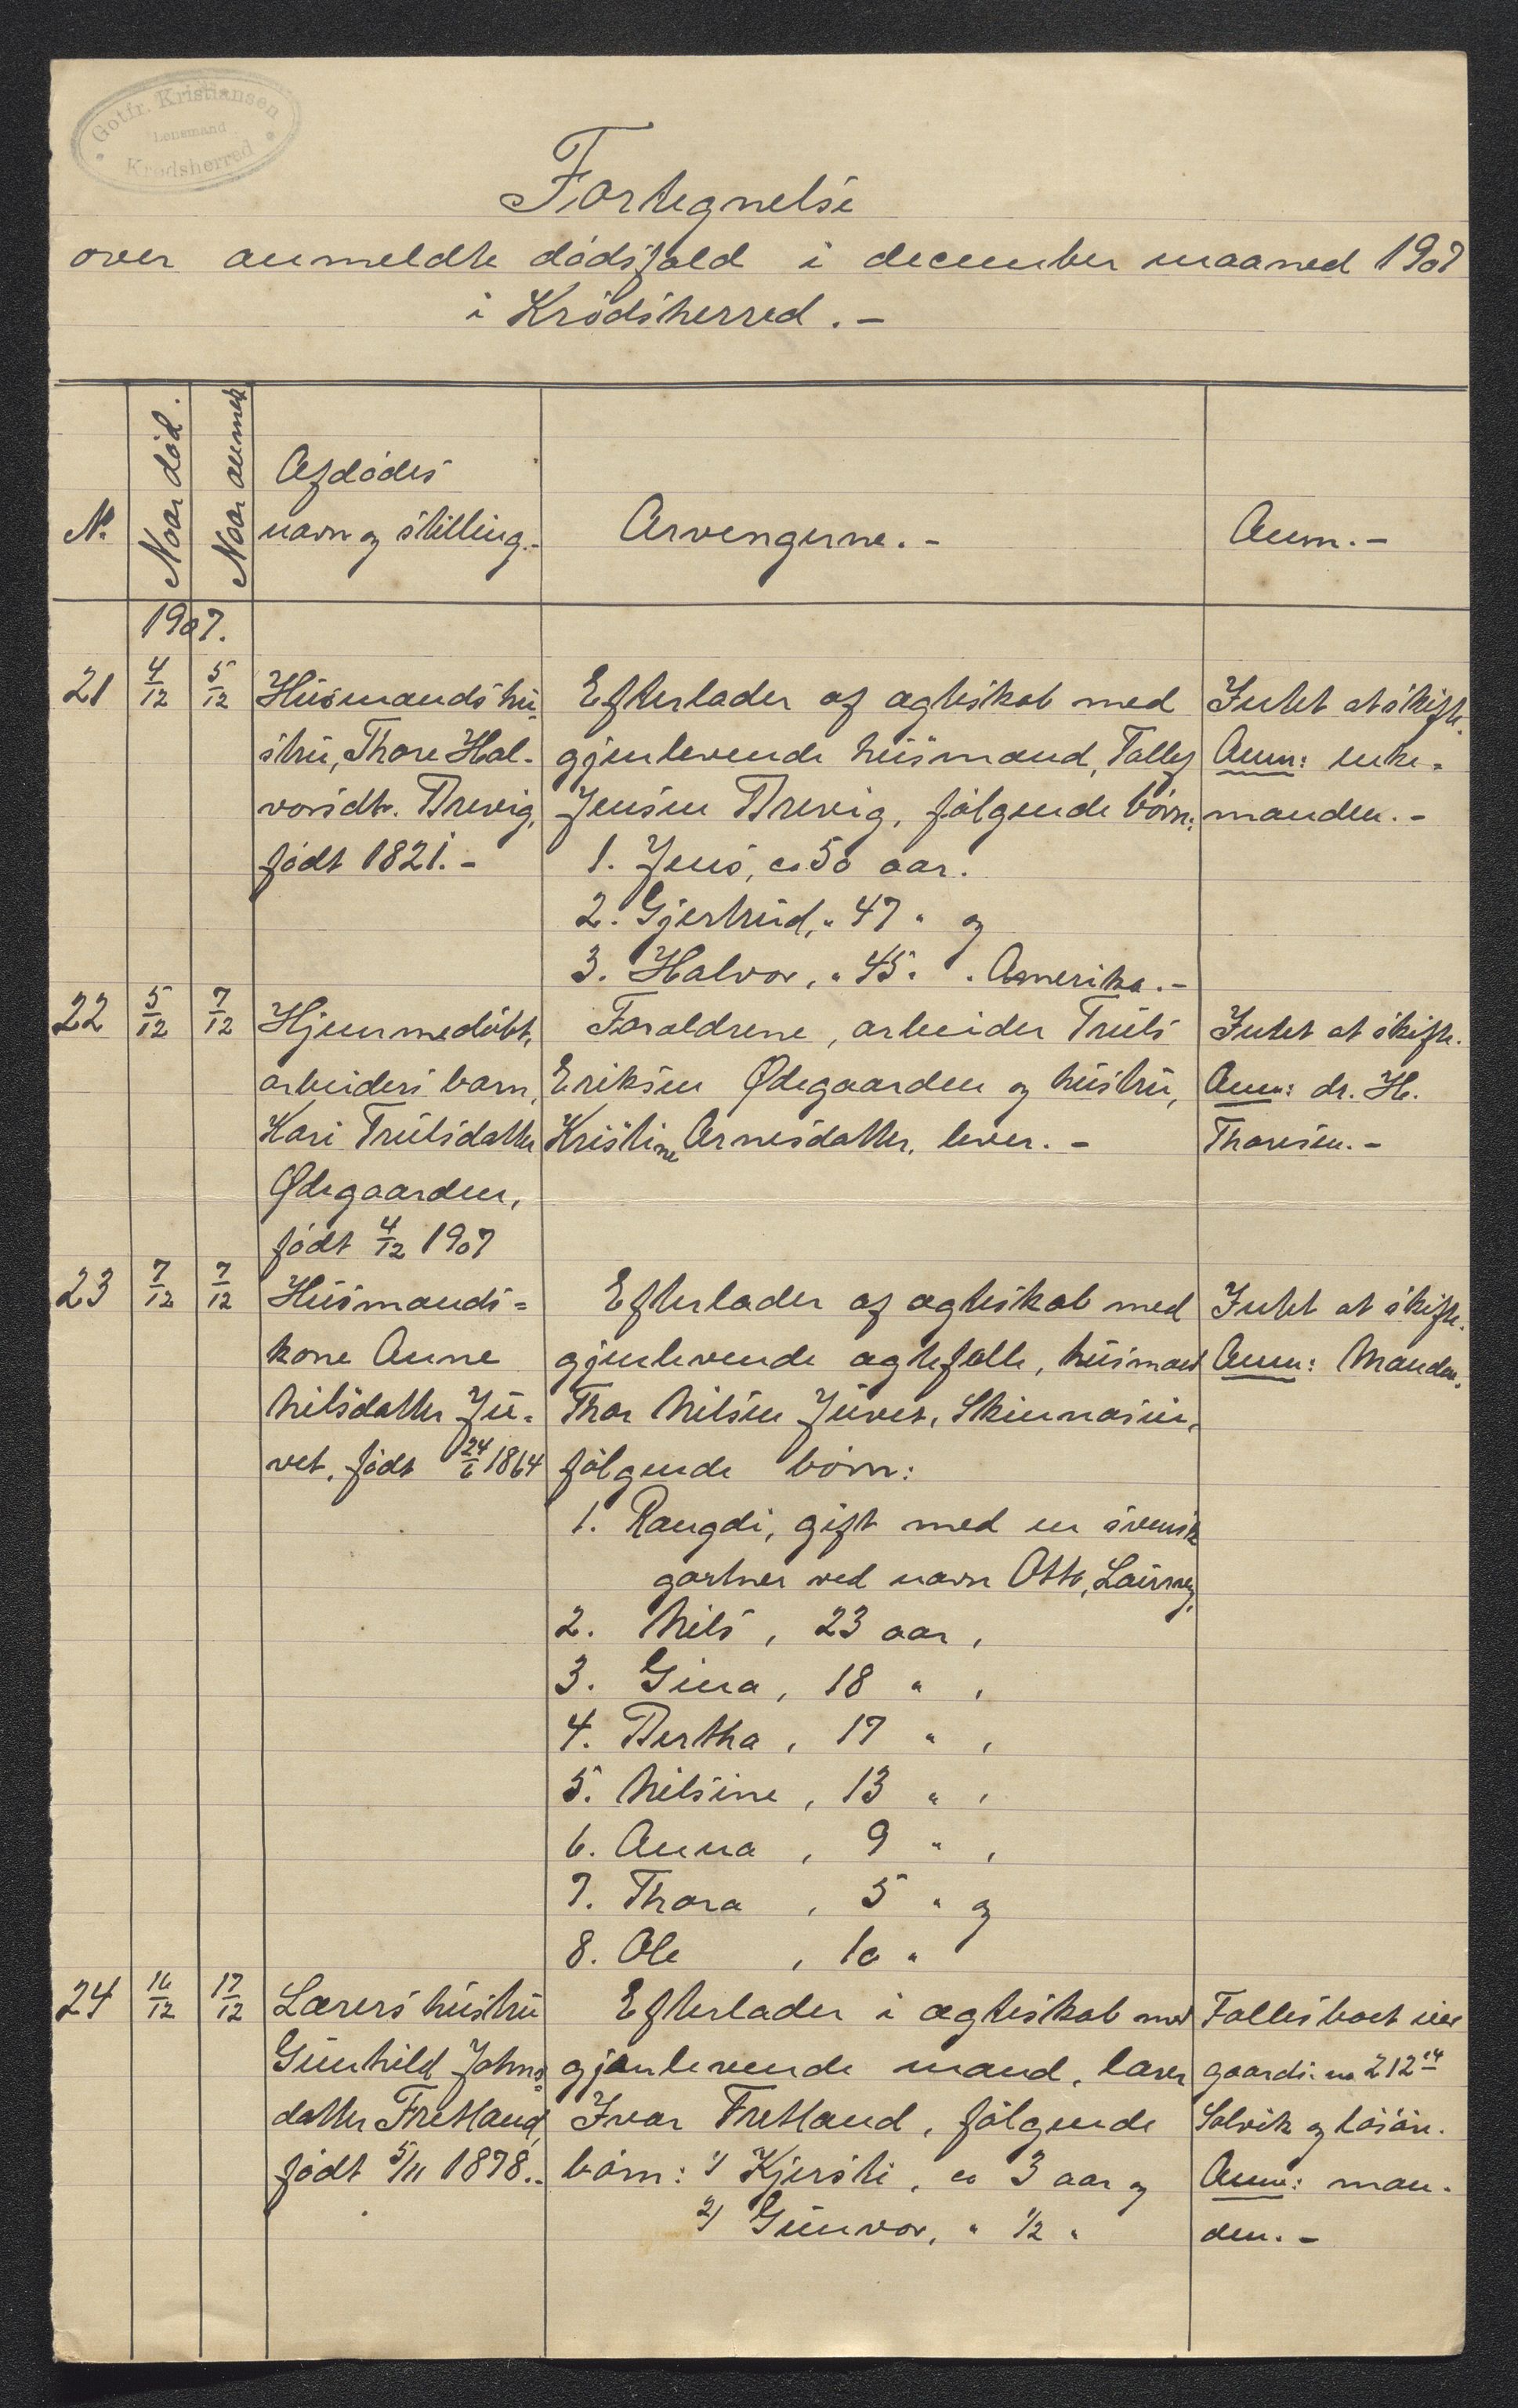 Gotfr. Kristiansen
Lensmand
Krødsherred
Fortegnelse
over anmeldte dødsfald i december maaned 1907
i Krødsherred.-
N.
Naar død.
Naar anmeldt
Afdødes
navn og stilling.-
Arvengerne.-
Anm.-
1907.
21
4/12
5/12
Husmandshu-
stru, Thore Hal-
vorsdtr. Brevig,
født 1821.-
Efterlader af ægteskab med
gjenlevende husmand, Tollef
Jensen Brevig, følgende børn:
1. Jens, ca 50 aar.
2. Gjertrud, " 47 " og
3. Halvor, " 45 " . Amerika.-
Intet at skifte.
Anm: enke-
manden.-
22
5/12
7/12
Hjemmedøbt,
arbeiders barn,
Kari Trulsdatter
Ødegaarden,
født 4/12 1907
Forældrene, arbeider Truls
Eriksen Ødegaarden og hustru,
Kristine Arnesdatter, lever.-
Intet at skifte.
Anm: dr. H.
Thoresen.-
23
7/12
7/12
Husmands-
kone Anne
Nilsdatter Ju-
vet, født 24/6 1864
Efterlader af ægteskab med
gjenlevende ægtefælle, husmand
Thor Nilsen Juvet,
følgende børn:
1. Rangdi, gift med en svensk
gartner ved navn Otto,
2. Nils, 23 aar,
3. Gina, 18 " ,
4. Bertha, 17 " ,
5. Nilsine, 13 " ,
6. Anna, 9 " ,
7. Thora, 5 " og
8. Ole, 10 "
Intet at skifte.
Anm: Manden.
24
16/12
17/12
Lærers hustru
Gunhild Johns-
datter Fretland,
født 5/11 1878.-
Efterlader i ægteskab med
gjenlevende mand, lærer
Ivar Fretland, følgende
børn: 1/ Kjersti, ca 3 aar og
2/ Gunvor, " 1/2 "
Fællesboet eier
gaards: no 212 14
Solvik og løsøre.
Anm: man-
den.-